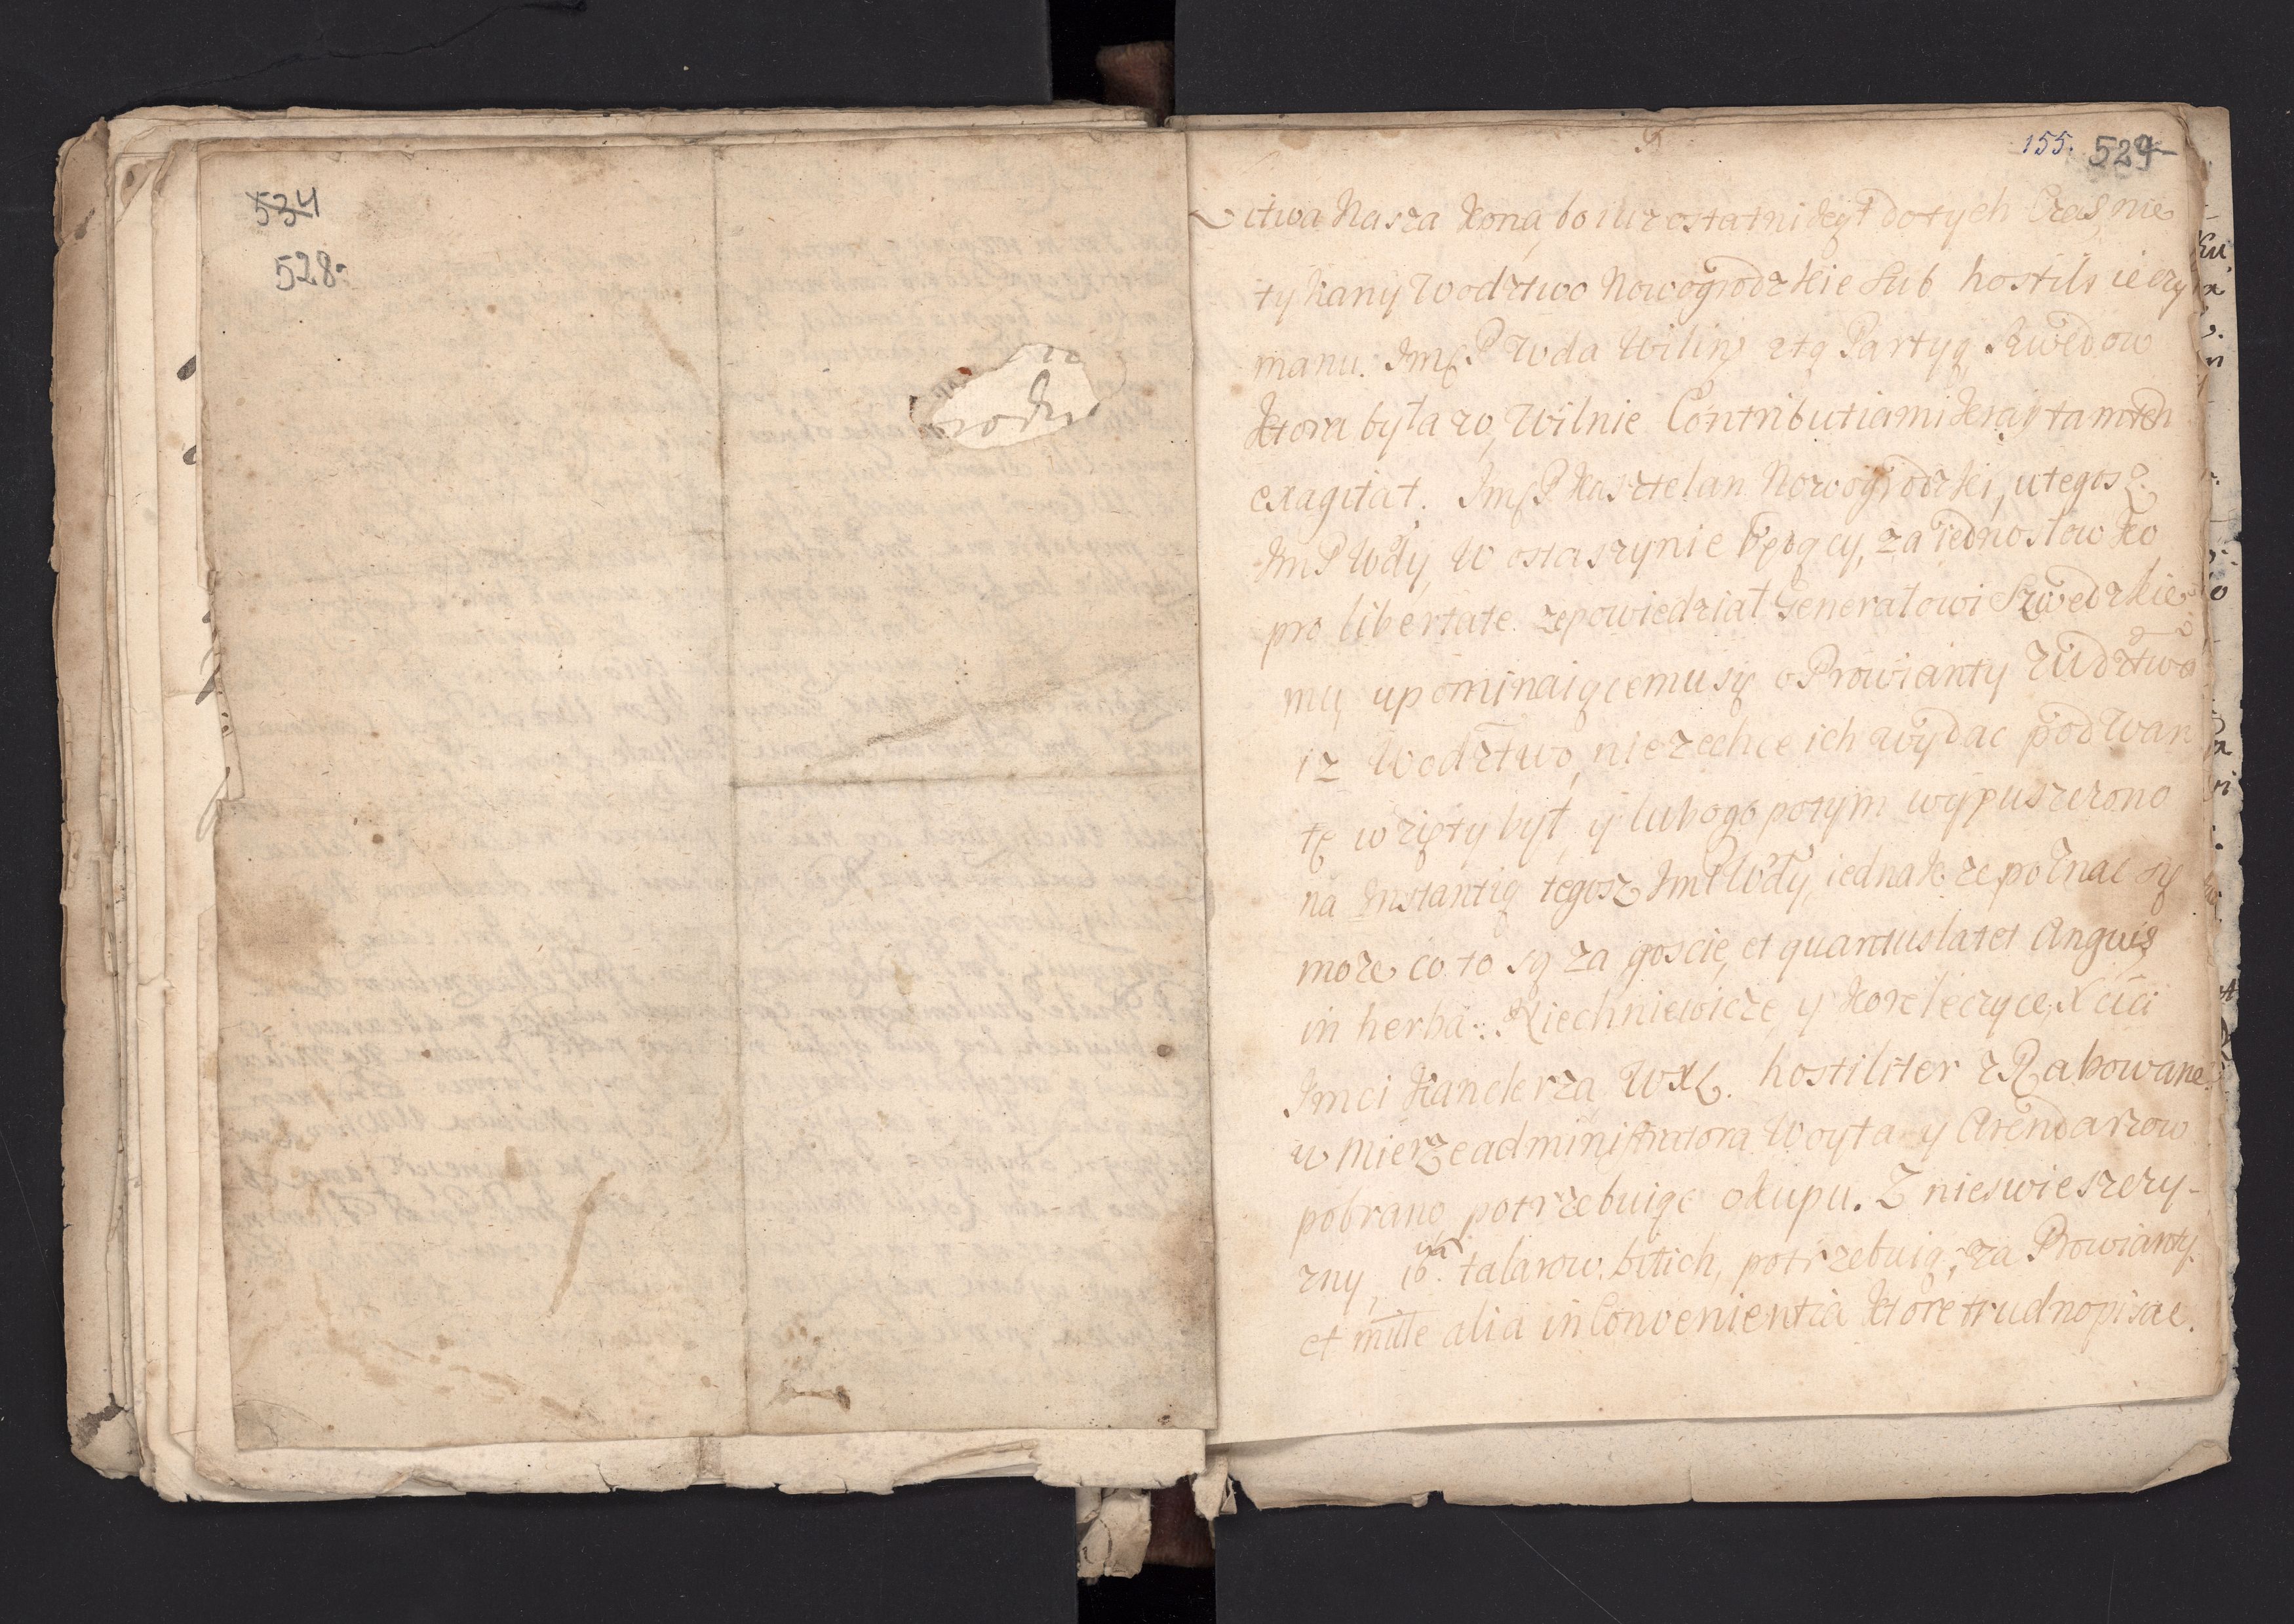 534
528.
155. 529
Litwa Nasza kona, bo iuz ostatni kąt do tych Czas nie
tykany Wodztwo Nowogrodzkie sub hostili ięczy
manu. Jmſ P Wda Wilin z tą Partyą Szwedow
ktora była w Wilnie Contributiami kray tamten
exagitat. Jmſ P Kasztelan Nowogrodzki, u tegosz
Jm P Wdy W ostaszynie będący, za iedno słowko
pro libertate ze powiedział Generałowi Szwedzkie
mu upominaiącemu się o Prowianty z Wdztwa
iz Wodztwo nie zechce ich wydac pod War
tę wzięty był, y lubo go potym wypuszczono
na Instantią tegosz Jm P Wdy, iednak ze poznac się
moze co to są za goscie, et quantus latet Anguis
in herba. Niechniewicze y Korelczyce Xcia
Jmci Kanclerza WXL. hostiliter zRabowane.
w Mierze administratora Woyta y Arendarzow
pobrano potrzebuiąc okupu. Z nieswieszczy-
zny, talarow bitich, potrzebuią, za Prowianty
et mille alia inConvenientia ktore trudno pisac.